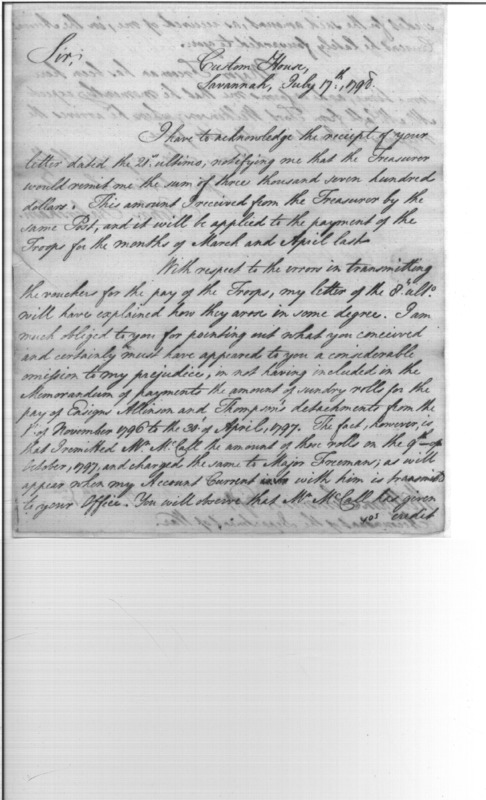 Sir,
Custom House,
Savannah, July 17th, 1798.
I have to acknowledge the receipt of your
letter dated the 21. ultimo, notifying me that the Treasurer
would remit me the sum of three thousand seven hundred
dollars. This amount I received from the Treasurer by the
same Post, and it will be applied to the payment of the
Troops for the months of March and April last.
With respect to the errors in transmitting
the vouchers for the pay of the Troops, my letter of the 8th ulto.
will have explained how they arose in some degree. I am
much obliged to you for pointing out what you conceived
and certainly must have appeared to you a considerable
omission to my prejudice, in not having included in the
Memorandum of payments the amount of sundry rolls for the
pay of Ensigns Allinson and Thompson's detachments from the
1st of November 1796 to the 30 of April, 1797. The fact, however, is
that I remitted Mr. McCall the amount of those rolls in the 9th of
October, 1797, and charged the same to Major Freeman; as will
appear when my Account Current with him is transmitted
to your Office. You will observe that Mr. McCall has given
credit